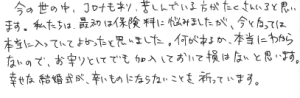 今の世の中、コロナもあり、苦しんでいる方がたくさんいると思い
ます。私たちは、最初は保険料に悩みましたが、今となっては
本当に入っていてよかったと思いました。何があるか、本当にわから
ないので、お守りとしてでも加入しておいて損はないと思います。
幸せな結婚式が、辛いものにならないことを祈っています。